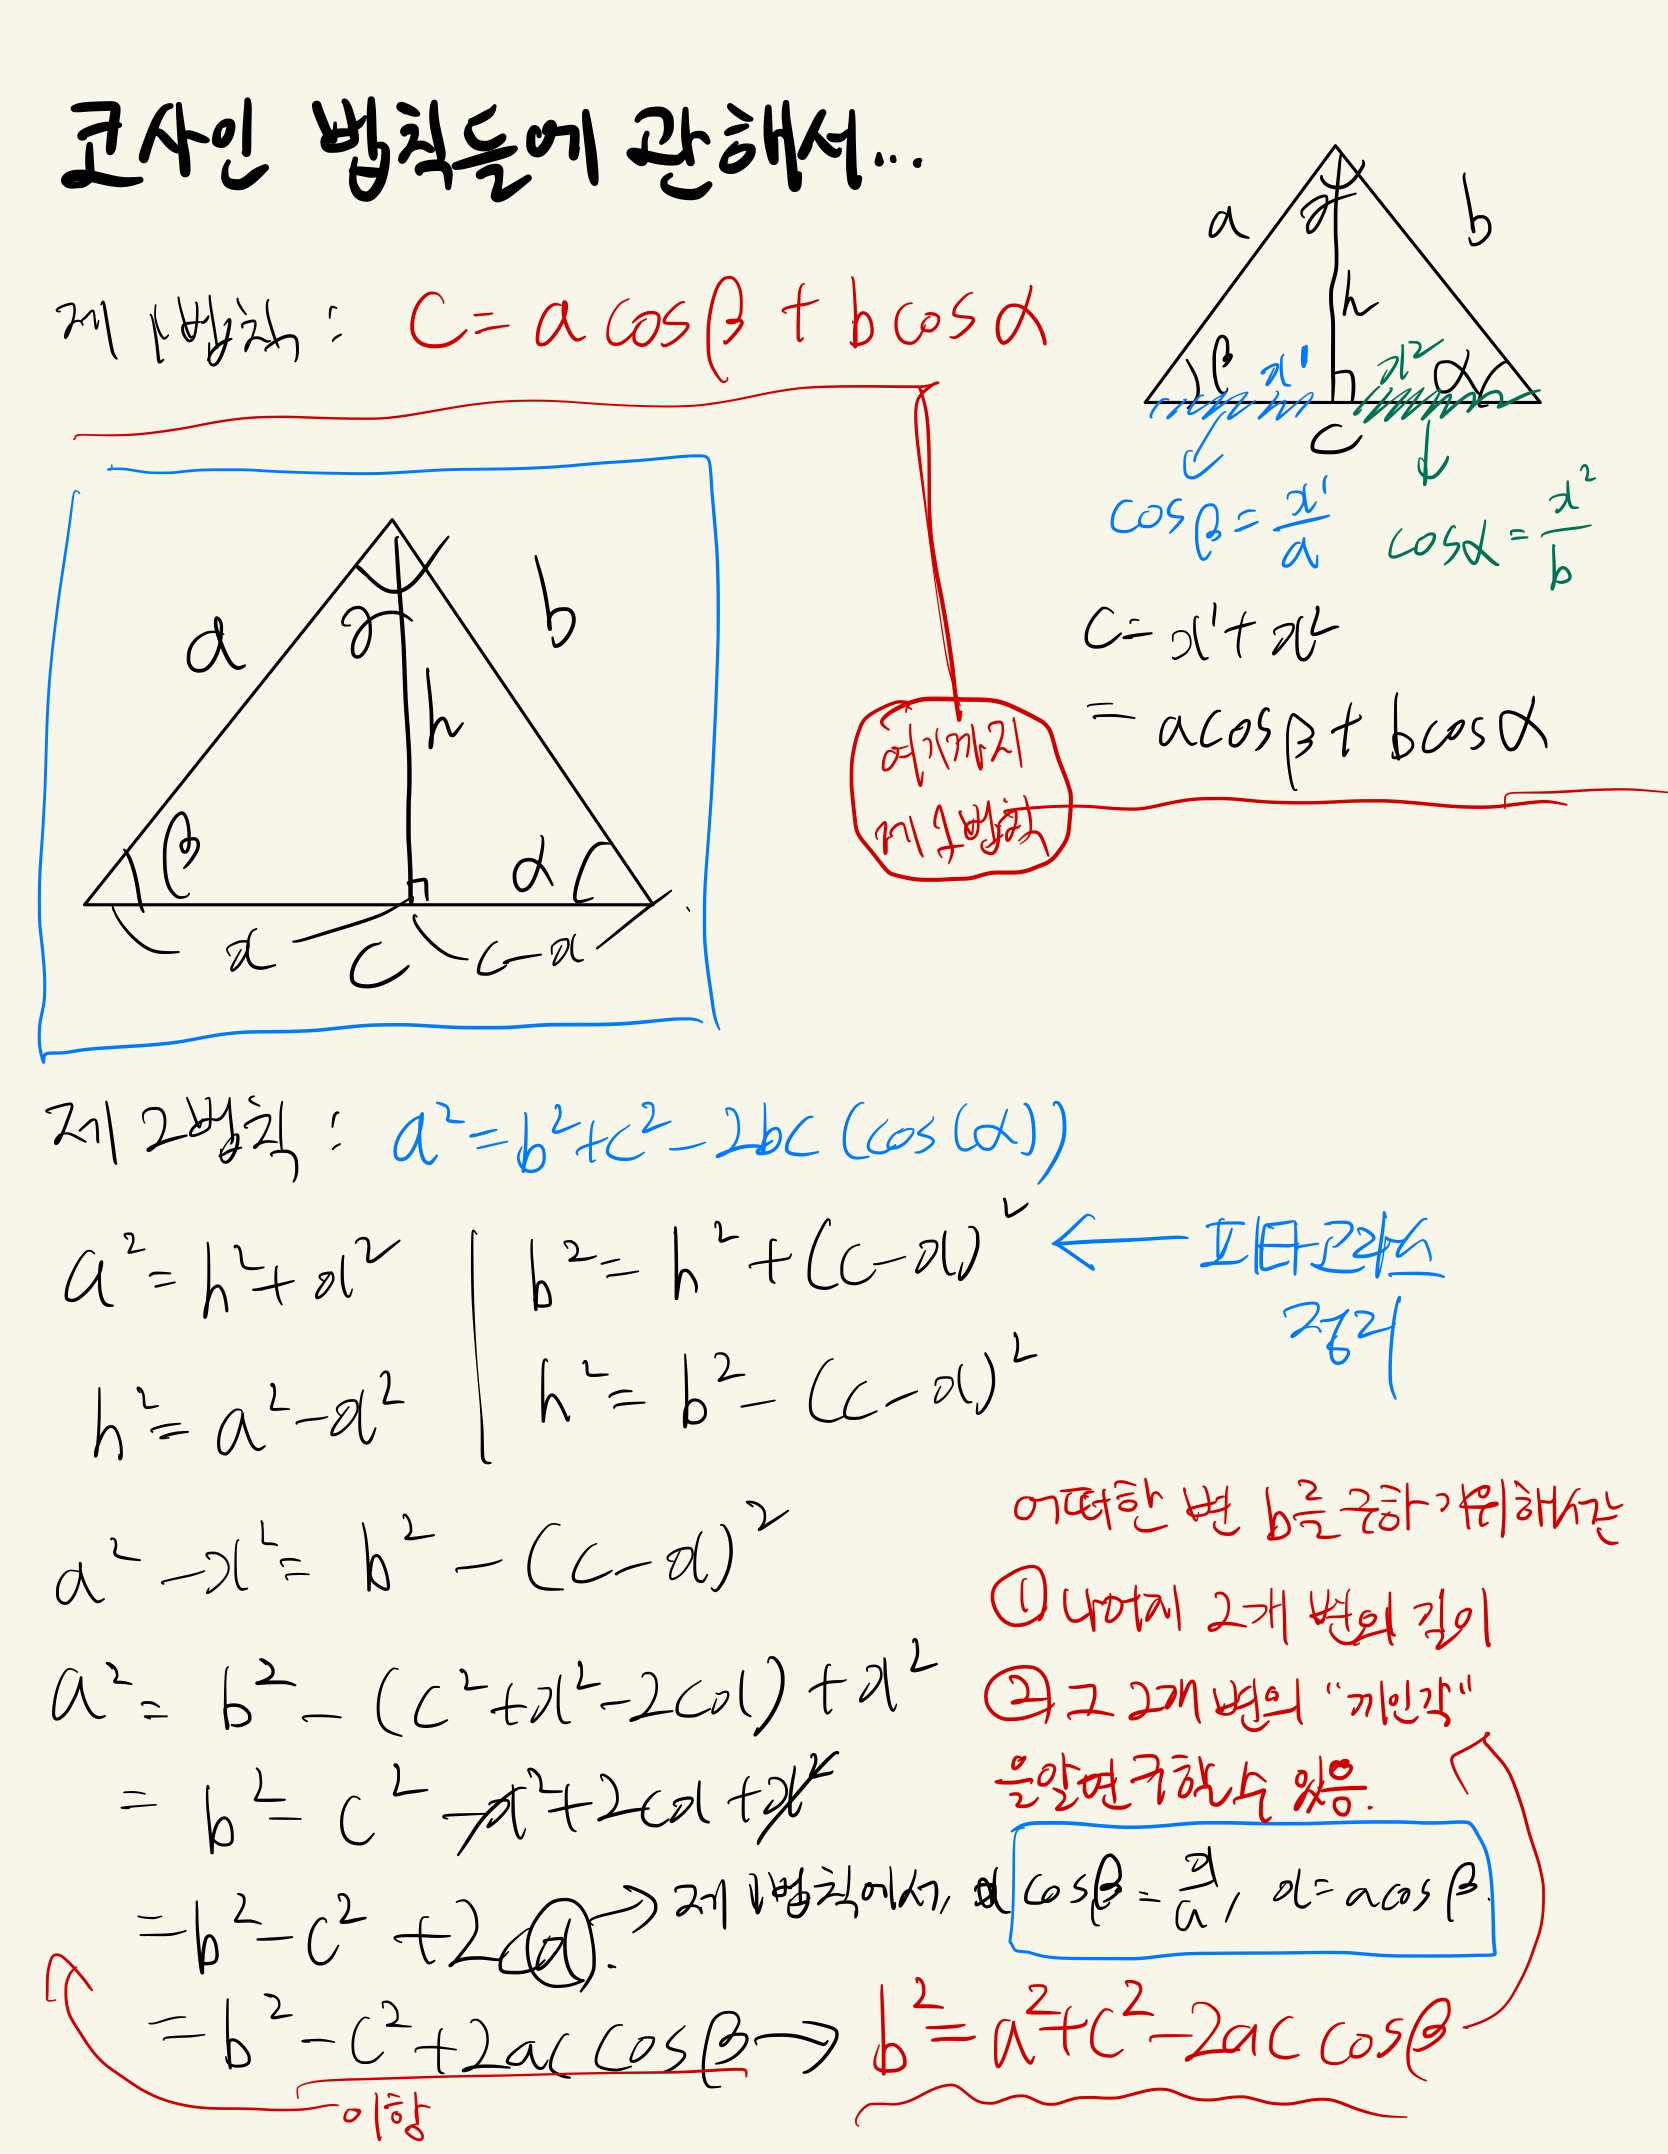 코사인 법칙들에 관해서...
제 1법칙 : c = a cosβ + b cosα
a γ b
h
β x¹ x² α
c
cosβ = x¹/a cosα = x²/b
c = x¹ + x²
= a cosβ + b cosα
여기까지
제 1법칙
a γ b
h
β α
x c c-x
제 2법칙 : a² = b² + c² - 2bc (cos(α))
a² = h² + x² | b² = h² + (c-x)² ← 피타고라스
정리
h² = a² - x² | h² = b² - (c-x)²
a² - x² = b² - (c-x)²
a² = b² - (c² + x² - 2cx) + x²
= b² - c² - x² + 2cx + x²
= b² - c² + 2cx. → 제 1법칙에서, cosβ = x/a, x = a cosβ.
= b² - c² + 2ac cosβ → b² = a² + c² - 2ac cosβ
이항
어떠한 변 b를 구하기위해서는
① 나머지 2개 변의 길이
② 그 2개 변의 "끼인각"
을알면 구할수 있음.